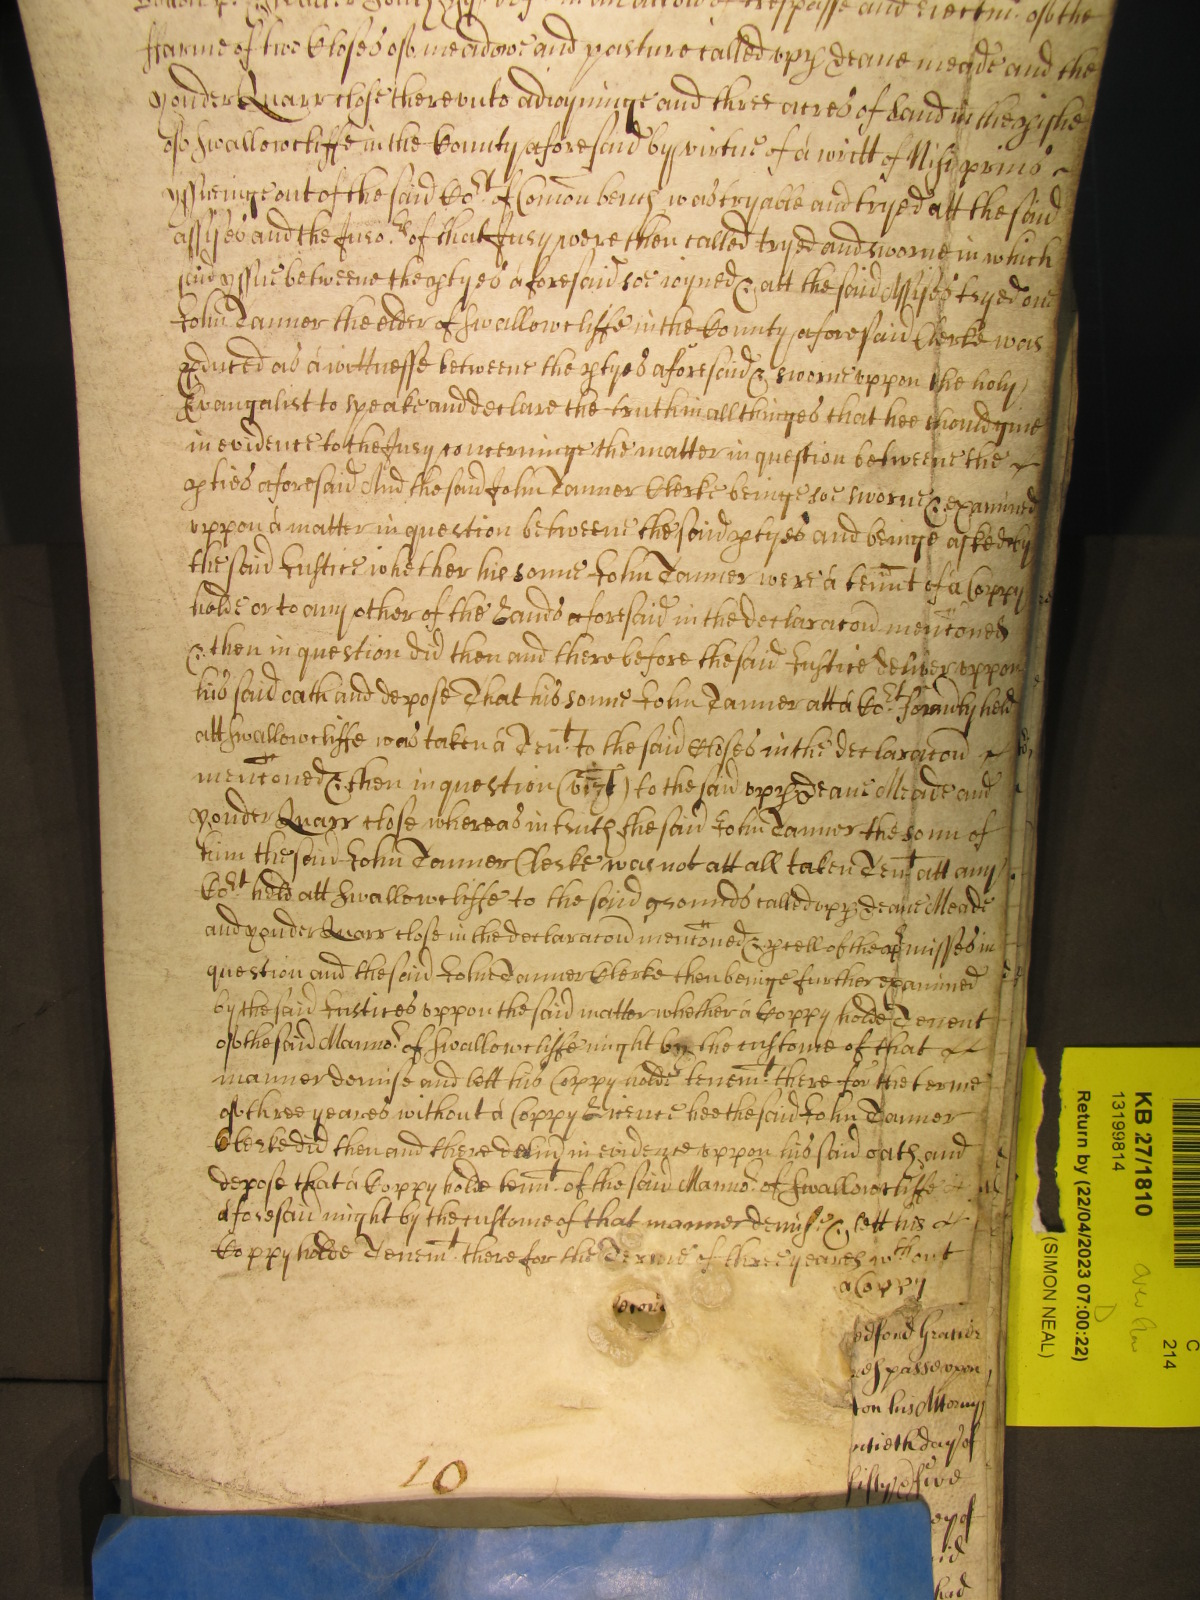 in an action of trespasse and eiectm't of the
ffarme of two Closes of meadowe and pasture called vpp deane meade and the
yonder Quarr close therevnto adioyninge and three acres of Land in the p'ishe
of Swallowcliffe in the County aforesaid by virtue of a writt of Nisi prius
yssueinge out of the said Co:t of Comon bench was tryable and tryed att the said
assizes and the Juro:rs of that Jury were then called tryed and sworne in which
said yssue betweene the p'tyes aforesaid soe ioyned & att the said Assizes tryed one
John Tanner the elder of Swallowcliffe in the County aforesaid Clerke was
p'duced as a wittnesse betweene the p'tyes aforesaid & sworne vppon the holy
Evangalist to speake and declare the truth in all thinges that hee should give
in evidence to the Jury concerninge the matter in question betweene the
p'ties aforesaid And the said John Tanner Clerke beinge soe sworne & examined
vppon a matter in question betweene the said p'tyes and beinge asked by
the said Justice whether his sonne John Tanner were a tenn't of a Coppy
holde or to any other of the Lands aforesaid in the declaracon menconed
& then in question did then and there before the said Justice deliver vppon
his said oath and depose That his sonne John Tanner att a Co:rt formerly held
att Swallowcliffe was taken a Ten:t to the said Closes in the declaracon
menconed & then in question (vizt) to the said vpp deane Meade and
yonder Quarr close whereas in truth the said John Tanner the sonn of
him the said John Tanner Clerke was not att all taken Ten:t att any
Co:rt held att Swallowcliffe to the said grounds called vpp deane Meade
and yonder Quarr close in the declaracon menconed & p'cell of the p'misses in
question and the said John Tanner Clerke then beinge further examined
by the said Justices vppon the said matter whether a Coppy holde Tenent
of the said Manno:r of Swallowcliffe might by the custome of that
manner demise and lett his Coppy holde tenem:t there for the terme
of three yeares without a Coppy Licence hee the said John Tanner
Clerke did then and there deliu' in evidence vppon his said oath and
depose that a Coppy holde tenn:t of the said Manno:r of Swallowcliffe
aforesaid might by the custome of that manner demise & lett his
Coppyholde Tenem:t there for the Terme of three yeares wthout
a Coppy
edford Gratis
espasse vpon
on his Attorny
ntieth day of
fifty & five
ey of
id
had
10
KB 27/1810
13199814
Return by (22/04/2023 07:00:22)
(SIMON NEAL)
C
214